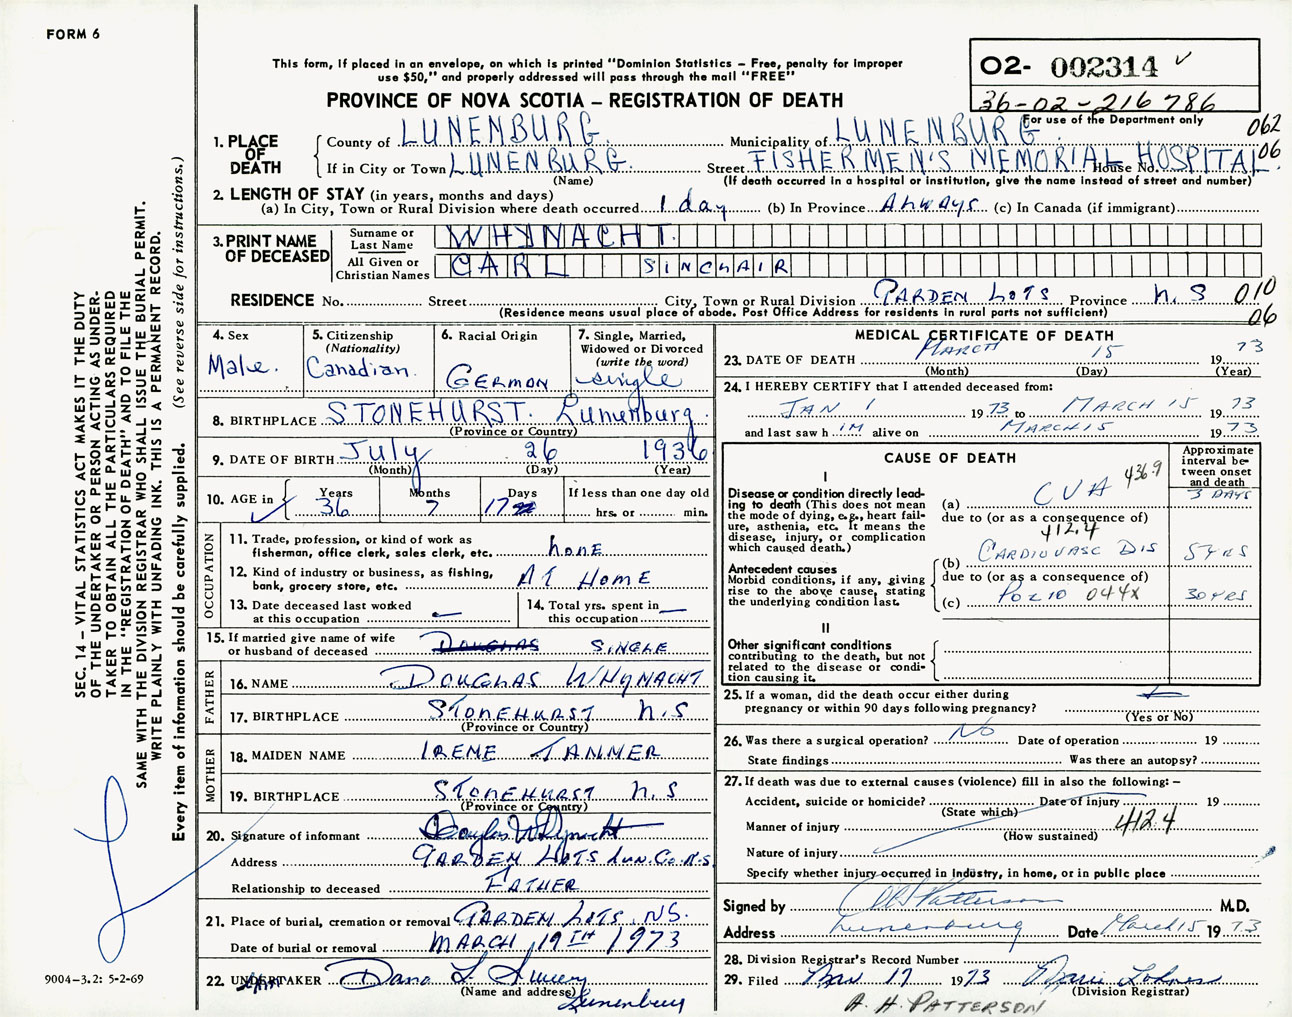 FORM 6
This form, if placed in an envelope, on which is printed "Dominion Statistics – Free, penalty for improper
use $50," and properly addressed will pass through the mail "FREE"
PROVINCE OF NOVA SCOTIA – REGISTRATION OF DEATH
02- 002314
36-02-216 786
For use of the Department only
062
06
1. PLACE OF DEATH
County of LUNENBURG Municipality of LUNENBURG
If in City or Town LUNENBURG. Street FISHERMEN'S MEMORIAL HOSPITAL. House No.
(Name) (If death occurred in a hospital or institution, give the name instead of street and number)
2. LENGTH OF STAY (in years, months and days)
(a) In City, Town or Rural Division where death occurred 1 day (b) In Province Always (c) In Canada (if immigrant)
3. PRINT NAME OF DECEASED
Surname or Last Name WHYNACHT
All Given or Christian Names CARL SINCLAIR
RESIDENCE No. Street City, Town or Rural Division GARDEN LOTS Province N.S 010
(Residence means usual place of abode. Post Office Address for residents in rural parts not sufficient) 06
4. Sex Male.
5. Citizenship (Nationality) Canadian.
6. Racial Origin GERMON
7. Single, Married, Widowed or Divorced (write the word) single
8. BIRTHPLACE STONEHURST. Lunenburg.
(Province or Country)
9. DATE OF BIRTH July 26 1936
(Month) (Day) (Year)
10. AGE in Years 36 Months 7 Days 17 If less than one day old hrs. or min.
OCCUPATION
11. Trade, profession, or kind of work as
fisherman, office clerk, sales clerk, etc. NONE
12. Kind of industry or business, as fishing,
bank, grocery store, etc. AT HOME
13. Date deceased last worked
at this occupation
14. Total yrs. spent in
this occupation
15. If married give name of wife
or husband of deceased DOUGLAS SINGLE
FATHER
16. NAME DOUGLAS WHYNACHT
17. BIRTHPLACE STONEHURST N.S
(Province or Country)
MOTHER
18. MAIDEN NAME IRENE TANNER
19. BIRTHPLACE STONEHURST N.S
(Province or Country)
20. Signature of informant Douglas Whynacht
Address GARDEN LOTS LUN.CO.N.S.
Relationship to deceased FATHER
21. Place of burial, cremation or removal GARDEN LOTS, NS.
Date of burial or removal MARCH 19TH 1973
22. UNDERTAKER Dana L.
(Name and address) Lunenburg
MEDICAL CERTIFICATE OF DEATH
23. DATE OF DEATH MARCH 15 1973
(Month) (Day) (Year)
24. I HEREBY CERTIFY that I attended deceased from:
JAN 1 1973 to MARCH 15 1973
and last saw h IM alive on MARCH 15 1973
CAUSE OF DEATH
Approximate interval between onset and death
I
Disease or condition directly leading to death (This does not mean the mode of dying, e.g., heart failure, asthenia, etc. It means the disease, injury, or complication which caused death.)
(a) CVA 436.9 3 DAYS
due to (or as a consequence of)
412.4
Antecedent causes
Morbid conditions, if any, giving rise to the above cause, stating the underlying condition last.
(b) CARDIOVASC DIS 5 YRS
due to (or as a consequence of)
(c) POLIO 044X 30 YRS
II
Other significant conditions
contributing to the death, but not related to the disease or condition causing it.
25. If a woman, did the death occur either during
pregnancy or within 90 days following pregnancy?
(Yes or No)
26. Was there a surgical operation? No Date of operation 19
State findings Was there an autopsy?
27. If death was due to external causes (violence) fill in also the following: –
Accident, suicide or homicide? Date of injury 19
(State which)
Manner of injury 412.4
(How sustained)
Nature of injury
Specify whether injury occurred in industry, in home, or in public place
Signed by Patterson M.D.
Address Lunenburg Date March 15 1973
28. Division Registrar's Record Number
29. Filed Mar 17 1973 Marie Lohnes
(Division Registrar)
A. H. PATTERSON
SEC. 14 – VITAL STATISTICS ACT MAKES IT THE DUTY
OF THE UNDERTAKER OR PERSON ACTING AS UNDER-
TAKER TO OBTAIN ALL THE PARTICULARS REQUIRED
IN THE "REGISTRATION OF DEATH" AND TO FILE THE
SAME WITH THE DIVISION REGISTRAR WHO SHALL ISSUE THE BURIAL PERMIT.
WRITE PLAINLY WITH UNFADING INK. THIS IS A PERMANENT RECORD.
Every item of information should be carefully supplied. (See reverse side for instructions.)
9004–3.2: 5-2-69